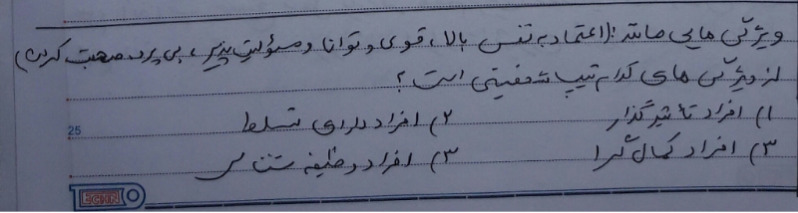 ویژگی هایی مانند: (اعتماد به نفس بالا، قوی و توانا و مسئولیت پذیر، بی پرده صحبت کردن)
از ویژگی های کدام تیپ شخصیتی است؟
۱) افراد تأثیرگذار ۲) افراد دارای تسلط
25
۳) افراد کمال گرا ۳) افراد وظیفه شناس